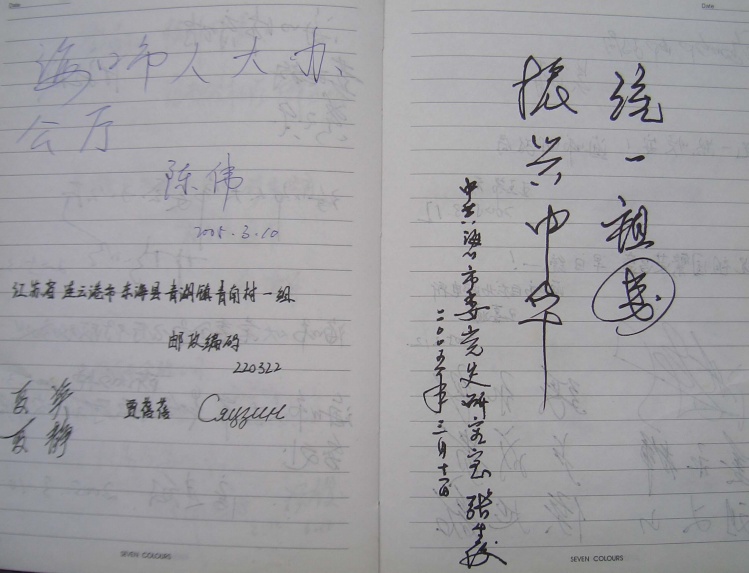 Date
海口市人大办
公厅
陈伟
2005.3.10
江苏省连云港市东海县青湖镇青南村一组
邮政编码
220322
夏静
Сяцзин
SEVEN COLOURS
Date
统一祖国
振兴中华
中共海口市委党史研究室
二〇〇五年三月十一日
SEVEN COLOURS